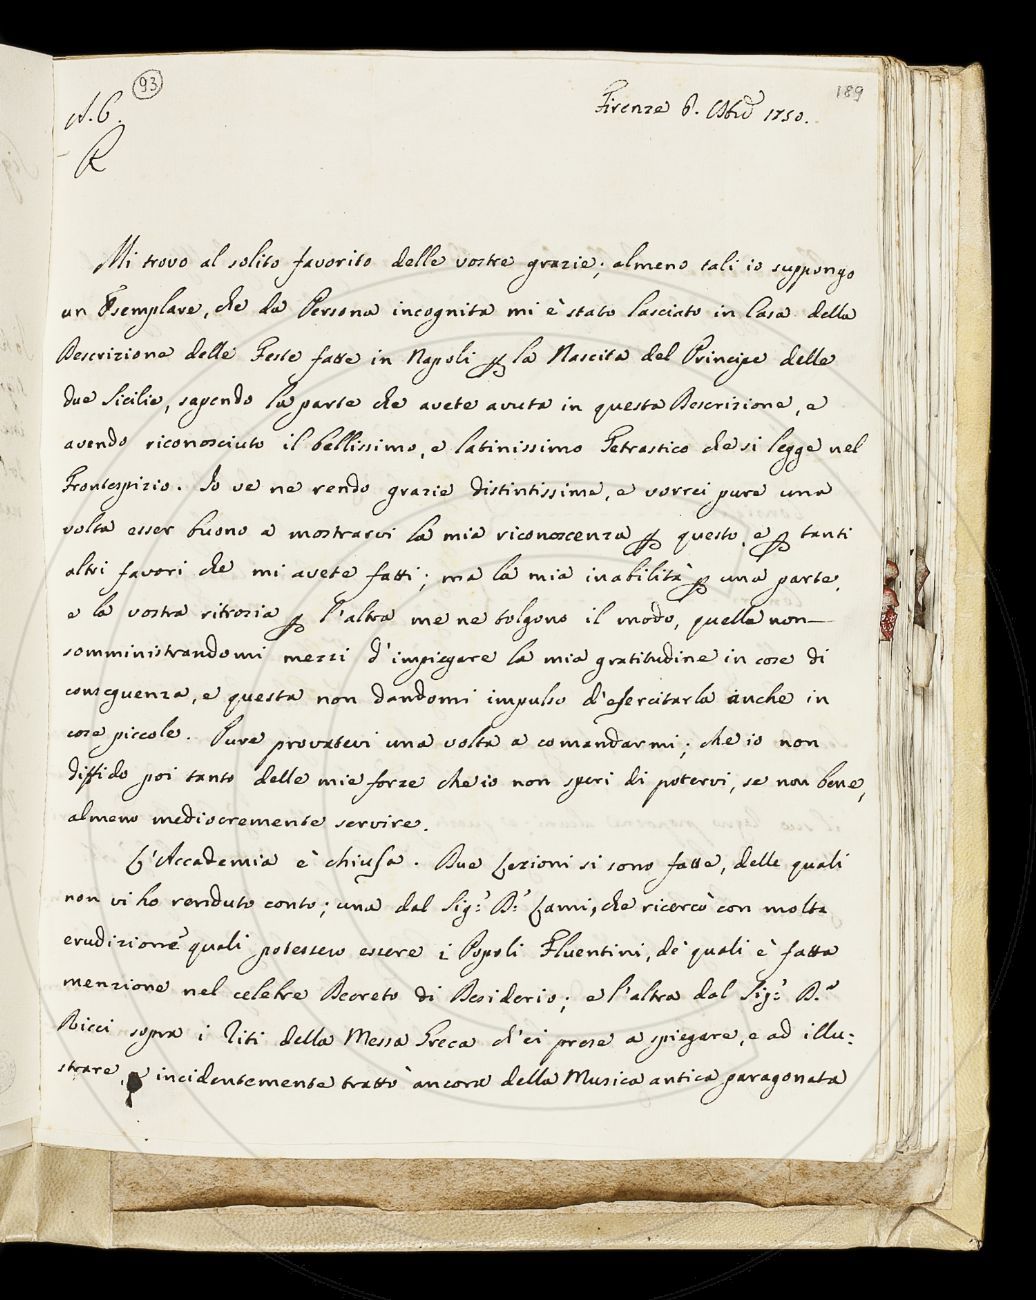 93
189
A. C.
R
Firenze 6. Obre 1750.
Mi trovo al solito favorito delle vostre grazie; almeno tali io suppongo
un Esemplare, che da Persona incognita mi è stato lasciato in Casa della
Descrizione delle Feste fatte in Napoli per la Nascita del Principe delle
due Sicilie, sapendo la parte che avete avuta in questa Descrizione, e
avendo riconosciuto il bellissimo, e latinissimo Tetrastico che si legge nel
Frontespizio. Io ve ne rendo grazie distintissime, e vorrei pure una
volta esser buono a mostrarvi la mia riconoscenza per questo, e per tanti
altri favori che mi avete fatti; ma la mia inabilità per una parte,
e la vostra ritrosia per l'altra me ne tolgono il modo, quella non
somministrandomi mezzi d'impiegare la mia gratitudine in cose di
conseguenza, e questa non dandomi impulso d'esercitarla anche in
cose piccole. Pure provatevi una volta a comandarmi; che io non
diffido poi tanto delle mie forze che io non speri di potervi, se non bene,
almeno mediocremente servire.
L'Accademia è chiusa. Due Lezioni si sono fatte, delle quali
non vi ho renduto conto; una dal Sig.r D.r Lami, che ricercò con molta
erudizione quali potessero essere i Popoli Fluentini, de' quali è fatta
menzione nel celebre Decreto di Desiderio; e l'altra dal Sig.r D.r
Ricci sopra i Riti della Messa Greca ch'ei prese a spiegare, e ad illu=
strare, e incidentemente trattò ancora della Musica antica paragonata